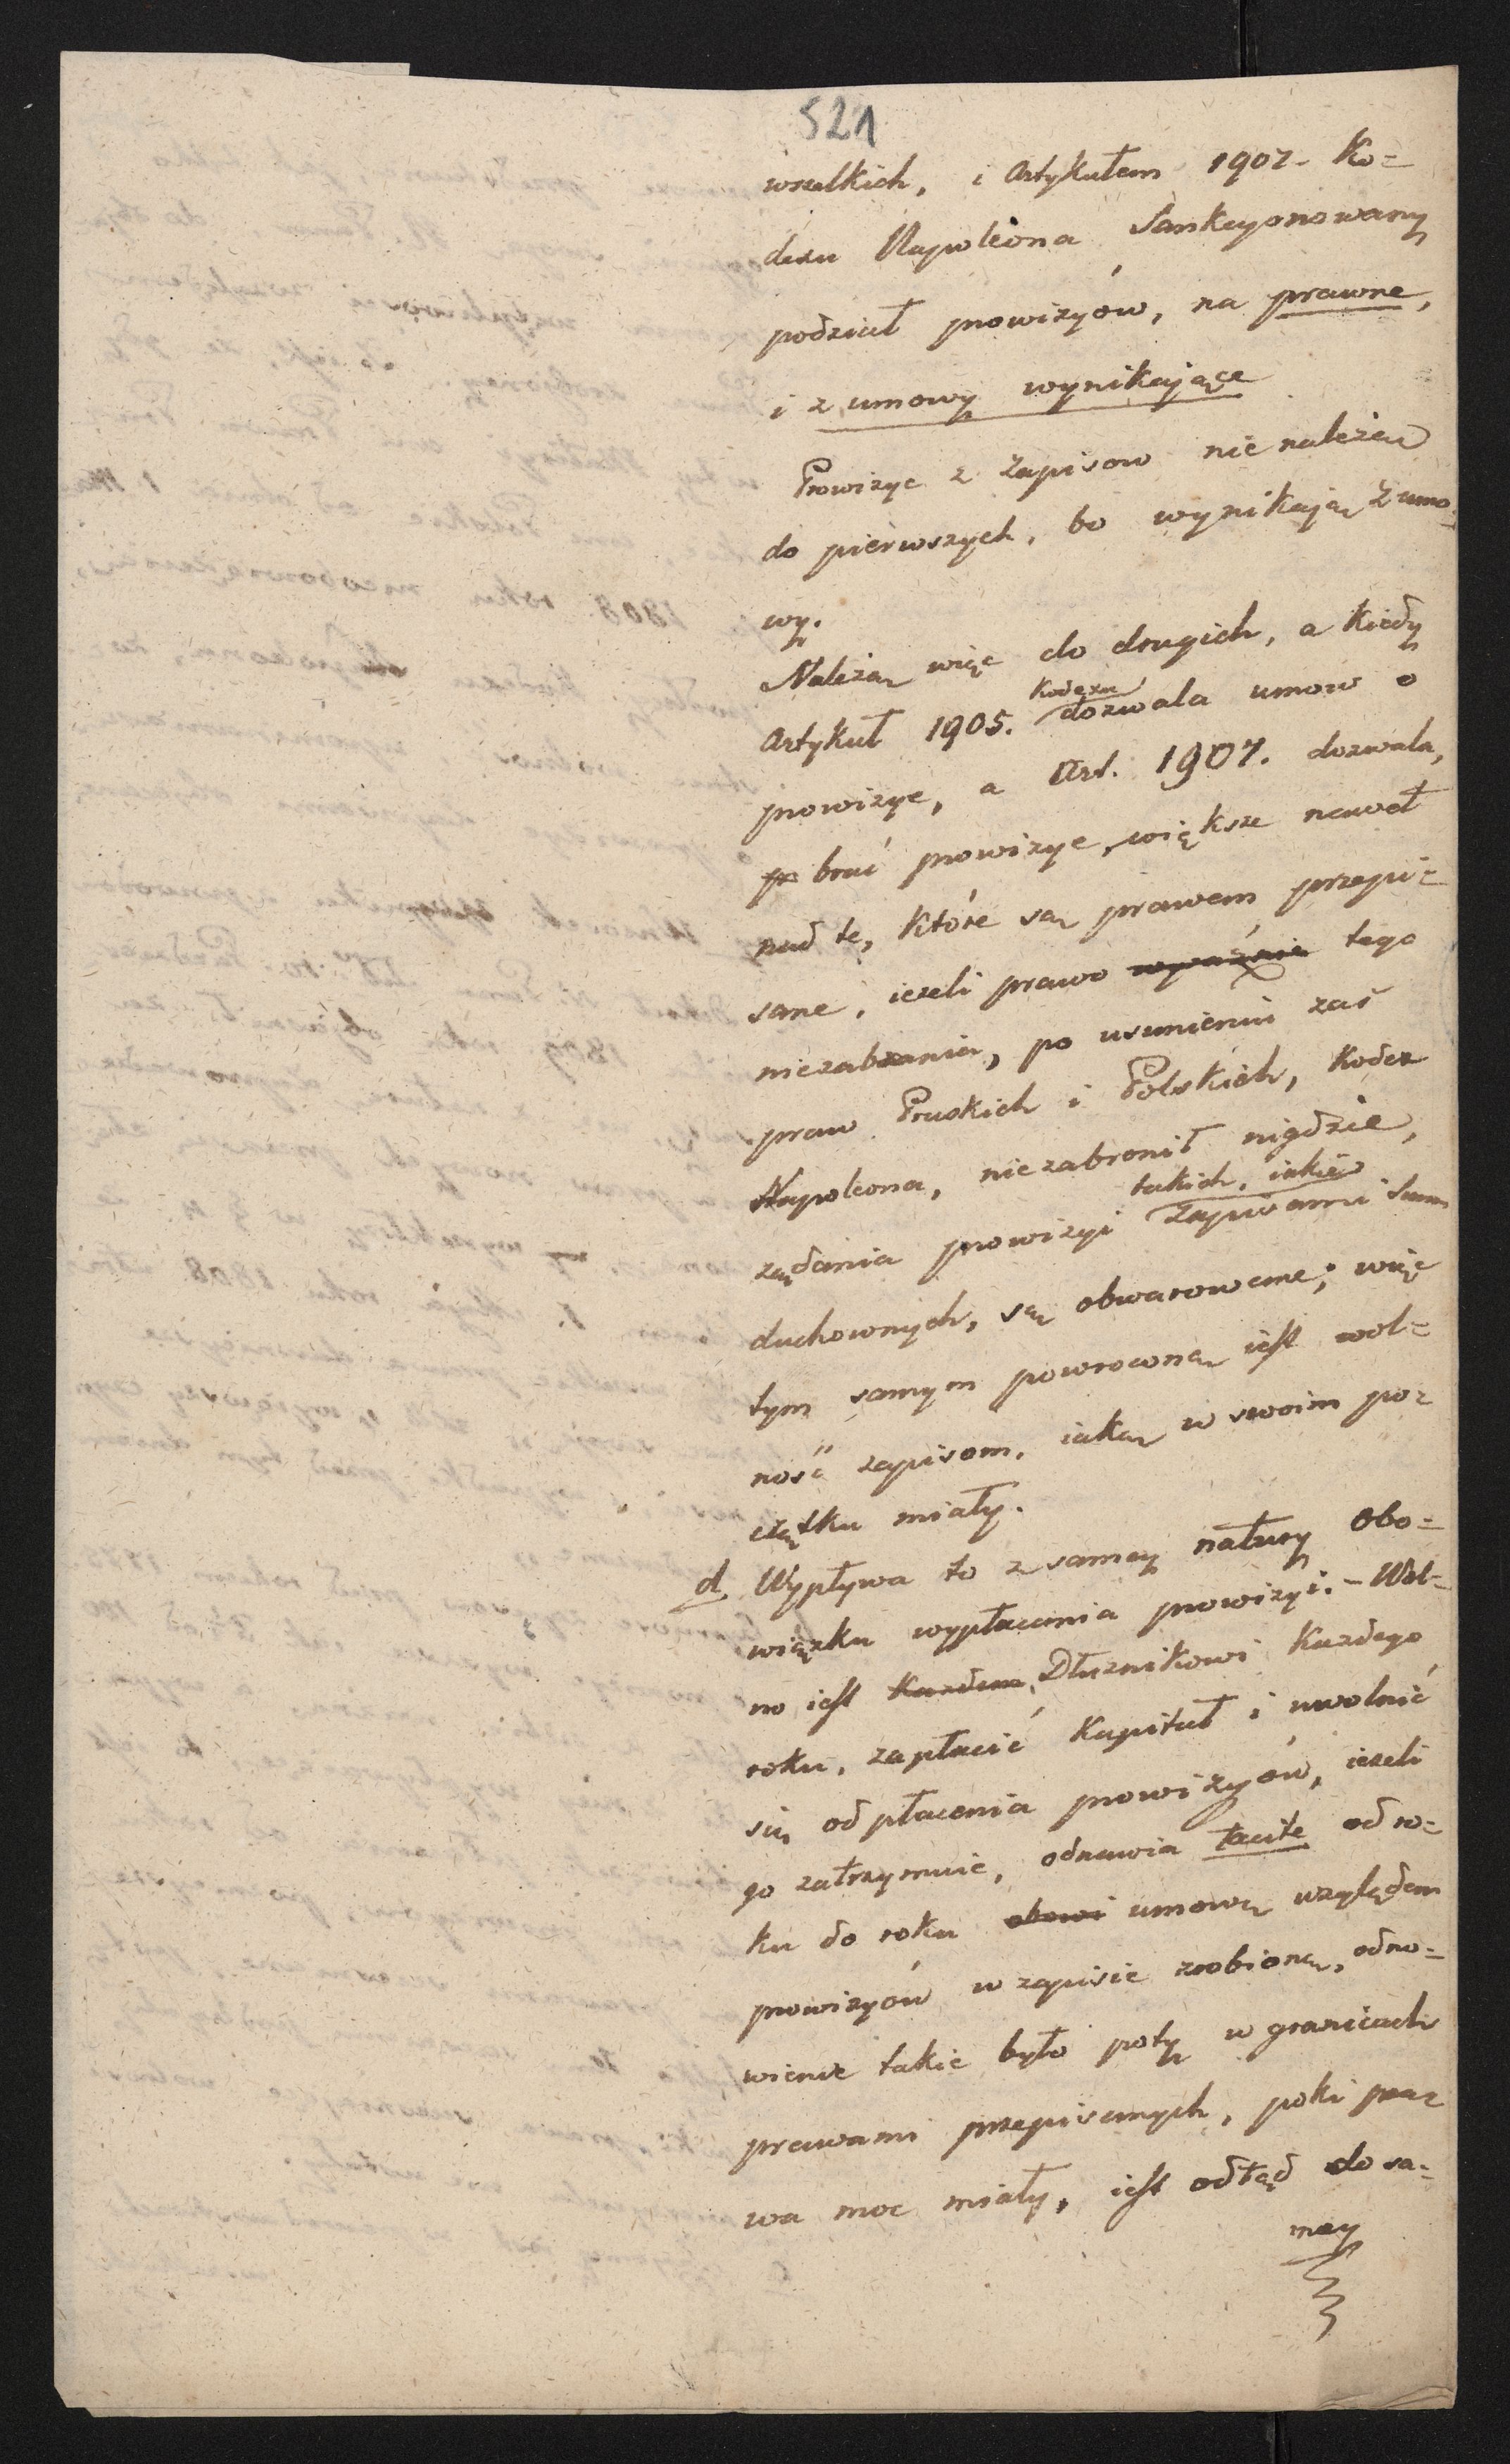 521
wszelkich, i Artykułem 1907. Ko=
dexu Napoleona Sankcyonowany
podział prowizyów, na prawne,
i z umowy wynikające
Prowizye z Zapisow nie należą
do pierwszych, bo wynikają z umo=
wy.
Należą więc do drugich, a kiedy
Kodexu
Artykuł 1905. dozwala umow o
prowizye, a Art. 1907. dozwala,
brać prowizye, większe nawet
nad te, które są prawem przepi=
sane, ieżeli prawo wyraźnie tego
niezabrania, po usunieniu zaś
praw Pruskich i Polskich, Kodex
Napoleona, niezabronił nigdzie,
takich, iakie
ządania prowizyi Zapisami Summ
duchownych, są obwarowane; więc
tym samym powrocona iest wol=
ność zapisom, iaką w swoim po=
czątku miały.
d. Wypływa to z samey natury obo=
wiązku wypłacania prowizyi. – Wol=
no iest każdem Dłużnikowi każdego
roku, zapłacić Kapitał i uwolnić
się od płacenia prowizyów, ieżeli
go zatrzymuie, odnawia tacite od ro=
ku do roku umowę względem
prowizyów w zapisie zrobioną, odno=
wienie takie było poty w granicach
prawami przepisanych, poki pra=
wa moc miały, iest odtąd do sa=
mey